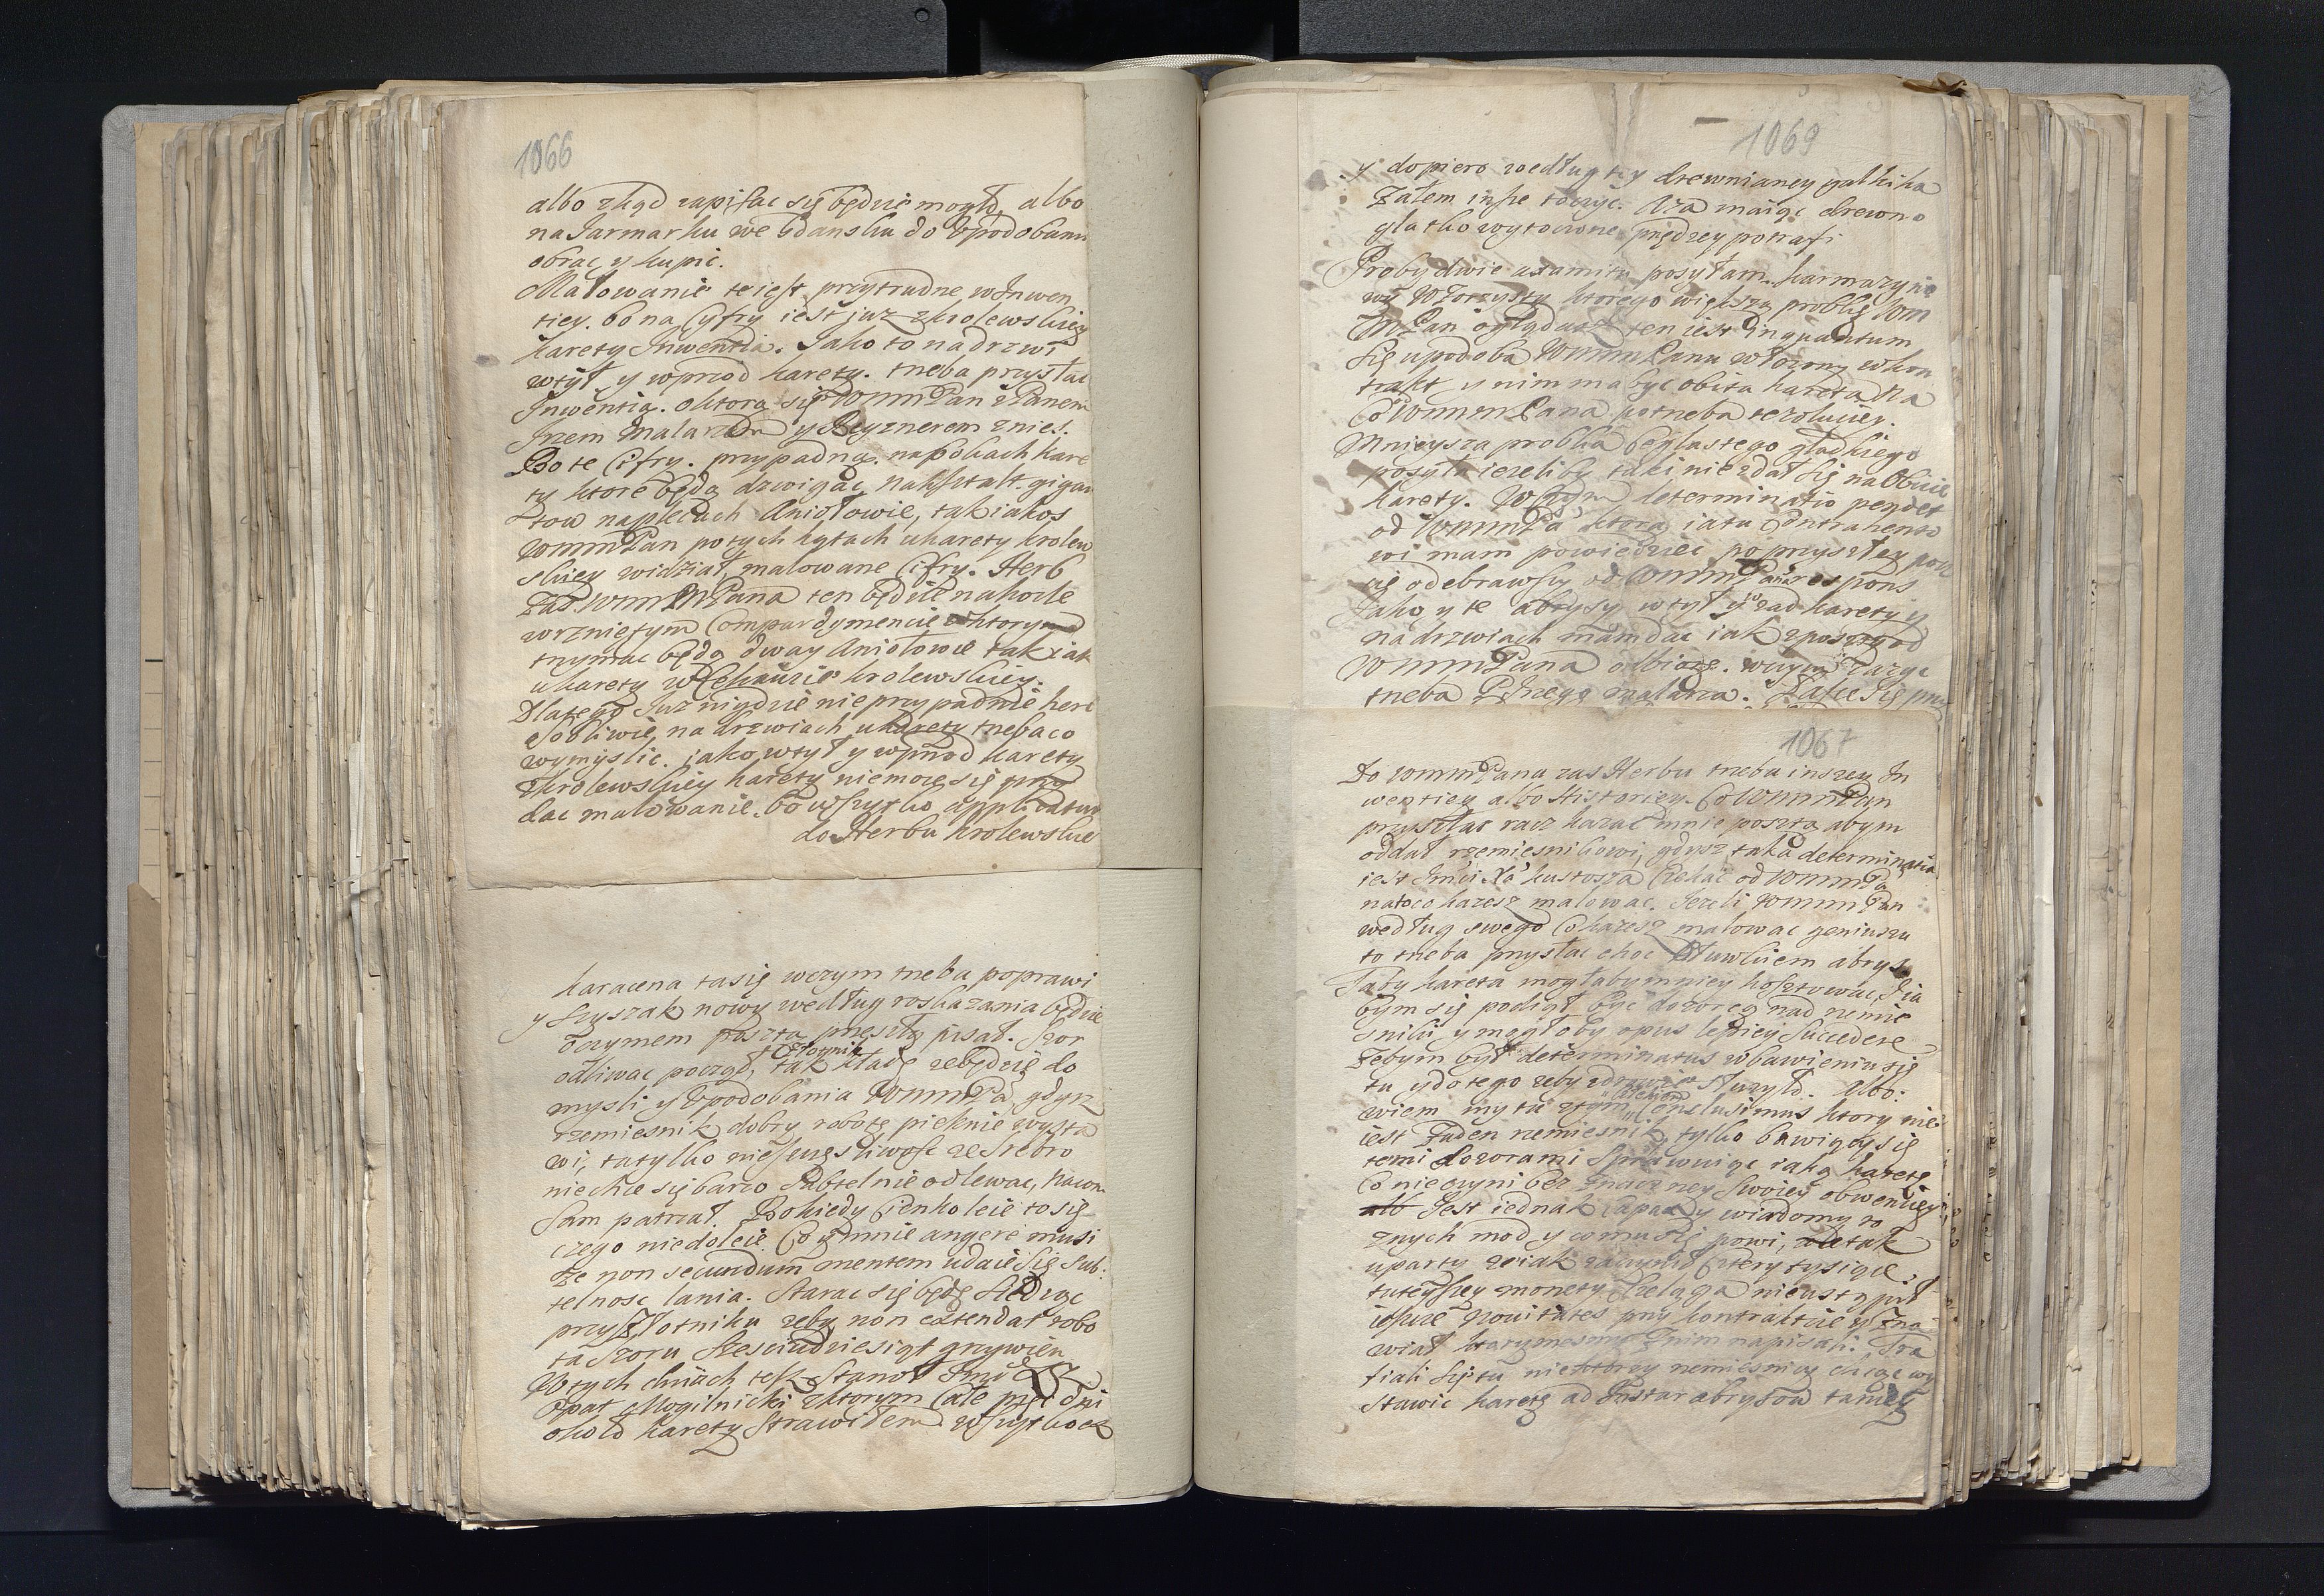 1066
albo zkąd zapisac się będzie mogło, albo
na Jarmarku we Gdansku do Upodobania
obrac y kupic.
Malowanie te iest przytrudne w Inwen
tiey. bo na Cyfry iest juz z krolewskiey
karety Inwentia. Jako to na drzwi
wtył y wprzod karety. trzeba przysłac
Inwentią. o ktorą się WMMPan z Panem
Malarzem y znies.
Bo te Cifry. przypadną na bokach kare
ty ktore będą dzwigac nakształt gigan
tow na plecach Aniołowie, tak iakos
WMMPan po tych kątach u karety krolew
skiey widział, malowane Cifry. Herb
zas WMMPana ten będzie na kole
w rzniętym Compardymencie ktory
trzymac będą dway Aniołowie tak iak
u karety w krolewskiey.
Dlatego Juz nigdzie nie przypadnie herb
na drzwiach u karety trzeba co
wymyslic. jako wtył y wprzod karety
Z krolewskiey karety nie moze się przy
dac malowanie. bo wszytko
do Herbu krolewskie
karacena ta się w czym trzeba poprawi
y Szyszak nowy według roskazania będzie
O czymem posztą przeszłą pisał. Szor
odliwac począł, złotnik tak ze będzie do
mysli y Upodobania WMMPa, gdyz
rzemiesnik dobry robotę pieknie wysta
wi, ta tylko nieszczęsliwosc ze srebro
nie chce się barzo Subtelnie odlewac,
Sam patrzał. Bo kiedy Cienko leie to się
czego nie doleie. Co y mnie angere musi
Ze non secundum mentem udaie się sub
telnosc lania. Starac się będę
przy Złotniku zeby non extendat robo
ta Szoru Szescdziesiąt grzywien
W tych dniach tesz Stanoł Jmc
Opat Mogilnicki z ktorym Cale pięc dni
około karety Strawiłem. wszytko
1069
y dopiero według tey drewnianey gałki ka
załem insze toczyc. Aza maiąc drewno
glatko wytoczone prędzey potrafi
Proby dwie axamitu posyłam. karmazyno
wy Wzorzysty ktorego większą probkę WM
MPan oglądasz ten iest inquantum
się upodoba WMMMPanu włozony w kon
trakt y nim ma byc obita kareta Na
Co WMMMPana potrzeba rezolucyey.
Mnieysza probka Ceglastego gładkiego
posyła iezeliby taki nie zdał się na Obicie
karety. W Czym determinatio pendet
od WMMPa ktorą ia tu Contrahento
wi mam powiedziec po przyszłey
odebrawszy od WMMPana respons
Jako y te abrysy wtył y wzad karety y
na drzwiach mam dac iak z posztą od
WMMPana odbiorę. w czym Zazyc
trzeba malarza.
1067
Do WMMPana zas Herbu trzeba inszey In
wentiey albo Historiey. Co WMMPan
przysłac racz kazac mnie posztą abym
oddał rzemiesnikowi, gdysz taka determinatia
iest Jmci Xa kustosza Czekac od WMMPa
na to co kazesz malowac. Jezeli WMMPan
według swego Co kazesz malowac geniuszu
to trzeba przysłac choc Ołuwkiem abrys.
Taby kareta mogłaby mniey kosztowac, Zia
bym się podiął byc dozorcą nad rzemie
snikii y mogłoby opus lepiey Succedere
zebym był determinatus w bawieniu się
tu y do tego zeby zdrowie słuzyło. Albo:
wiem my tu z tym Conclusimus ktory nie
iest Zaden rzemiesnik, tylko bawiący się
temi dozorami Sprawuiąc iaką karetę
Co nie czyni bez znaczney Swoiey obwenciey
Jest iednak y wiadomy ro
znych mod y co musię powi, ale tak
uparty ze iak Cztery tysiące
tuteyszey monety szeląga nieustąpił
ieszcze novitates przy kontrakcie
wiał ktorysmy z nim napisali. Tra
fiali się tu niektorzy rzemiesnicy chcąc wy
stawic karetę ad Instar abrysow tamtey